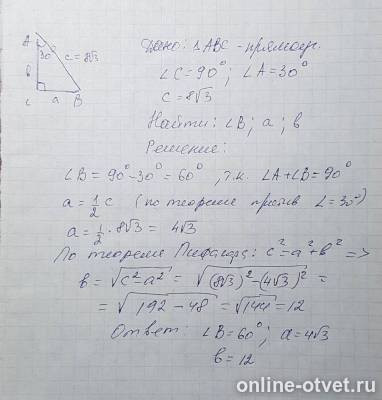 A
30°
c = 8√3
в
C
a
B
Дано: △ABC - прямоуг.
∠C = 90°; ∠A = 30°
c = 8√3
Найти: ∠B; a; в
Решение:
∠B = 90° - 30° = 60°, т.к. ∠A + ∠B = 90°
a = 1/2 c (по теореме против ∠ = 30°)
a = 1/2 · 8√3 = 4√3
По теореме Пифагора: c² = a² + в² =>
в = √c² - a² = √(8√3)² - (4√3)² =
= √192 - 48 = √144 = 12
Ответ: ∠B = 60°; a = 4√3
в = 12
online-otvet.ru